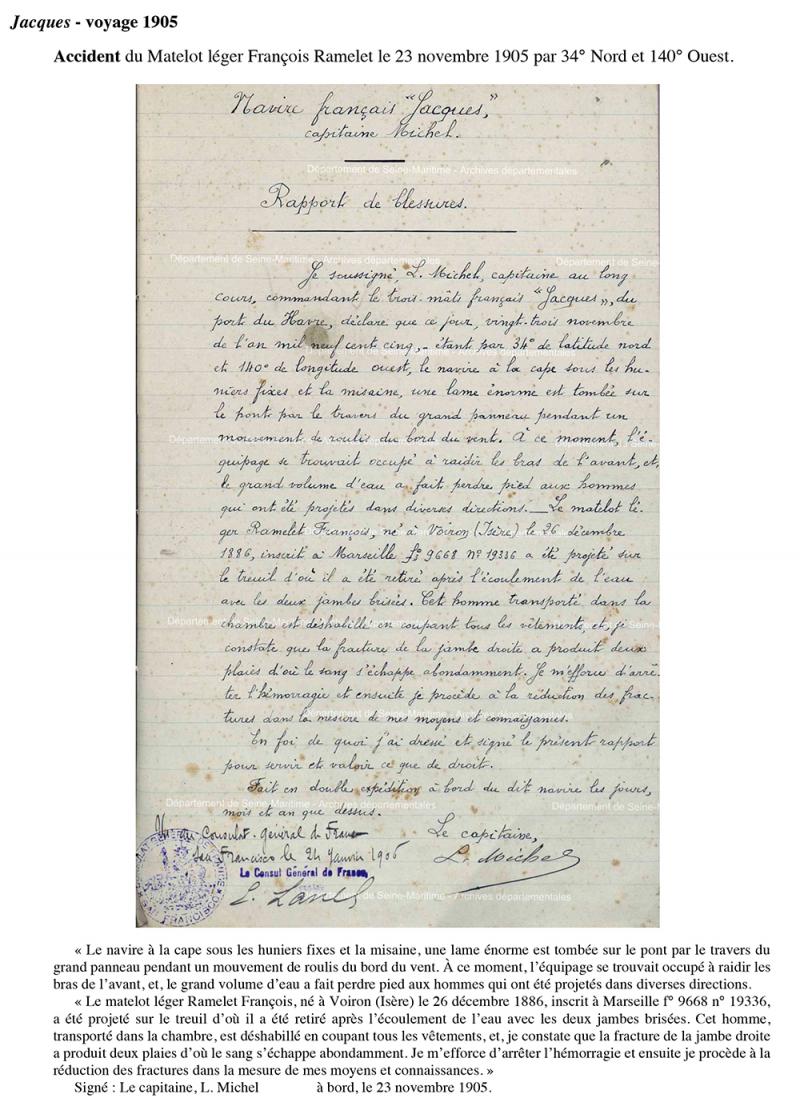 Jacques - voyage 1905
Accident du Matelot léger François Ramelet le 23 novembre 1905 par 34° Nord et 140° Ouest.
Navire français "Jacques",
capitaine Michel.
Département de Seine-Maritime - Archives départementales
Rapport de blessures.
Département de Seine-Maritime - Archives départementales
Département de Seine-M
Je soussigné, L. Michel, capitaine au long
cours, commandant le trois-mâts français "Jacques", du
port du Havre, déclare que ce jour, vingt-trois novembre
de l'an mil neuf cent cinq, - étant par 34° de latitude nord
et 140° de longitude ouest, le navire à la cape sous les hu-
niers fixes et la misaine, une lame énorme est tombée sur
le pont par le travers du grand panneau pendant un
mouvement de roulis du bord du vent. À ce moment, l'é-
quipage se trouvait occupé à raidir les bras de l'avant, et,
le grand volume d'eau a fait perdre pied aux hommes
qui ont été projetés dans diverses directions. __ Le matelot lé-
ger Ramelet François, né à Voiron (Isère) le 26 décembre
1886, inscrit à Marseille f° 9668 n° 19336 a été projeté sur
le treuil d'où il a été retiré après l'écoulement de l'eau
avec les deux jambes brisées. Cet homme transporté dans la
chambre est déshabillé en coupant tous les vêtements, et, je
constate que la fracture de la jambe droite a produit deux
plaies d'où le sang s'échappe abondamment. Je m'efforce d'arrê-
ter l'hémorragie et ensuite je procède à la réduction des frac-
tures dans la mesure de mes moyens et connaissances.
En foi de quoi j'ai dressé et signé le présent rapport
pour servir et valoir ce que de droit.
Fait en double expédition à bord du dit navire les jours,
mois et an que dessus.
Le capitaine,
L. Michel
Vu au Consulat général de France
San Francisco le 24 Janvier 1906
Le Consul Général de France,
SAN FRANCISCO
Département de Seine-Maritime - Archives départementales
« Le navire à la cape sous les huniers fixes et la misaine, une lame énorme est tombée sur le pont par le travers du
grand panneau pendant un mouvement de roulis du bord du vent. À ce moment, l'équipage se trouvait occupé à raidir les
bras de l'avant, et, le grand volume d'eau a fait perdre pied aux hommes qui ont été projetés dans diverses directions.
« Le matelot léger Ramelet François, né à Voiron (Isère) le 26 décembre 1886, inscrit à Marseille f° 9668 n° 19336,
a été projeté sur le treuil d'où il a été retiré après l'écoulement de l'eau avec les deux jambes brisées. Cet homme,
transporté dans la chambre, est déshabillé en coupant tous les vêtements, et, je constate que la fracture de la jambe droite
a produit deux plaies d'où le sang s'échappe abondamment. Je m'efforce d'arrêter l'hémorragie et ensuite je procède à la
réduction des fractures dans la mesure de mes moyens et connaissances. »
Signé : Le capitaine, L. Michel à bord, le 23 novembre 1905.